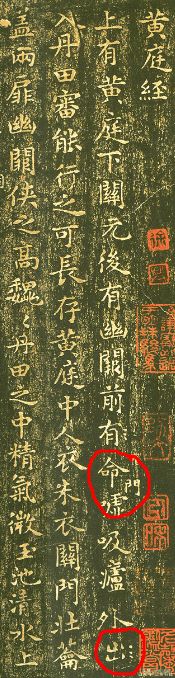 黄庭經
上有黄庭下關元後有幽闕前有命門噓吸廬外出
入丹田審能行之可長存黄庭中人衣朱衣關門壯籥
盖兩扉幽闕俠之髙魏〻丹田之中精氣微玉池清水上